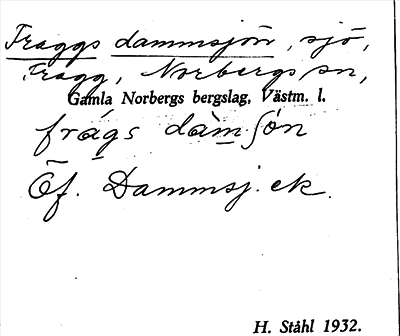 Fraggs dammsjön, sjö,
Fragg, Norbergs sn,
Gamla Norbergs bergslag, Västm. l.
frágs dàm ʃön
Öf. Dammsj. ek.
H. Ståhl 1932.